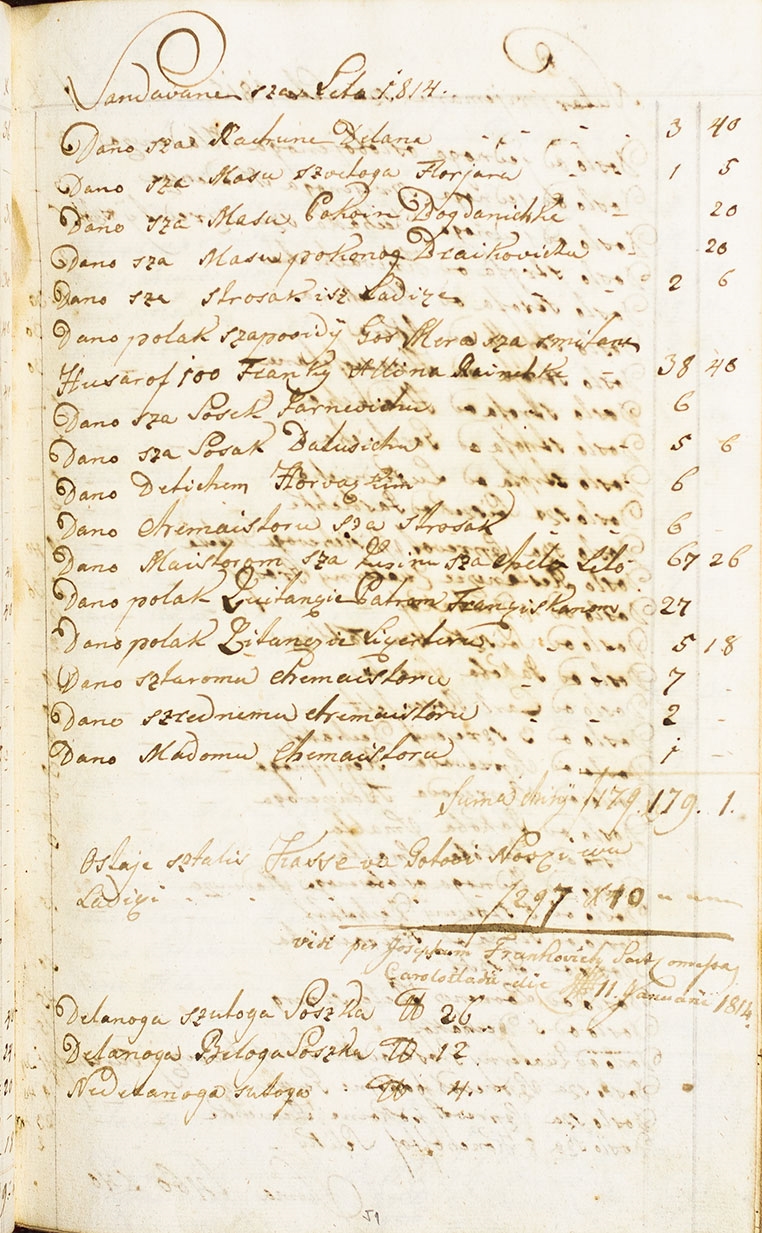 Vandavane sza Leto 1814.
Dano sza Rachune Delana 3 40
Dano sza Masu szvetoga Florjana 1 5
Dano sza Masu Pokoine Bogdanichke 20
Dano sza Masu pokonog Draikovicha 20
Dano sza strosak isz Ladize 2 6
Dano polak szapovidy Gos Mera sza
Husarof 100 Franky 38 40
Dano sza Posek Jarnevichu 6
Dano sza Posak Dalusichu 5 6
Dano Detichem Horvaczkim 6
Dano chemaistoru sza strosak 6
Dano Maistorom sza sza chelo Leto 67 26
Dano polak Quitangie Patrom Franciskanom 27
Dano polak 5 18
Dano sztaromu chemaistoru 7
Dano szrednemu chemaistoru 2
Dano Mladomu chemaistoru 1
Suma f 179. 179. 1.
Ostaje sztalis Kasse va Gotovi Noszu
Ladizi f 297 X 10
visi per Josephum Frankovich
Carolostadii die 11 Januarii 1814.
Delanoga szutoga Voszka ℔ 26
Delanoga Beloga Voszka ℔ 12
Nedelanoga sutoga ℔ 4.
51